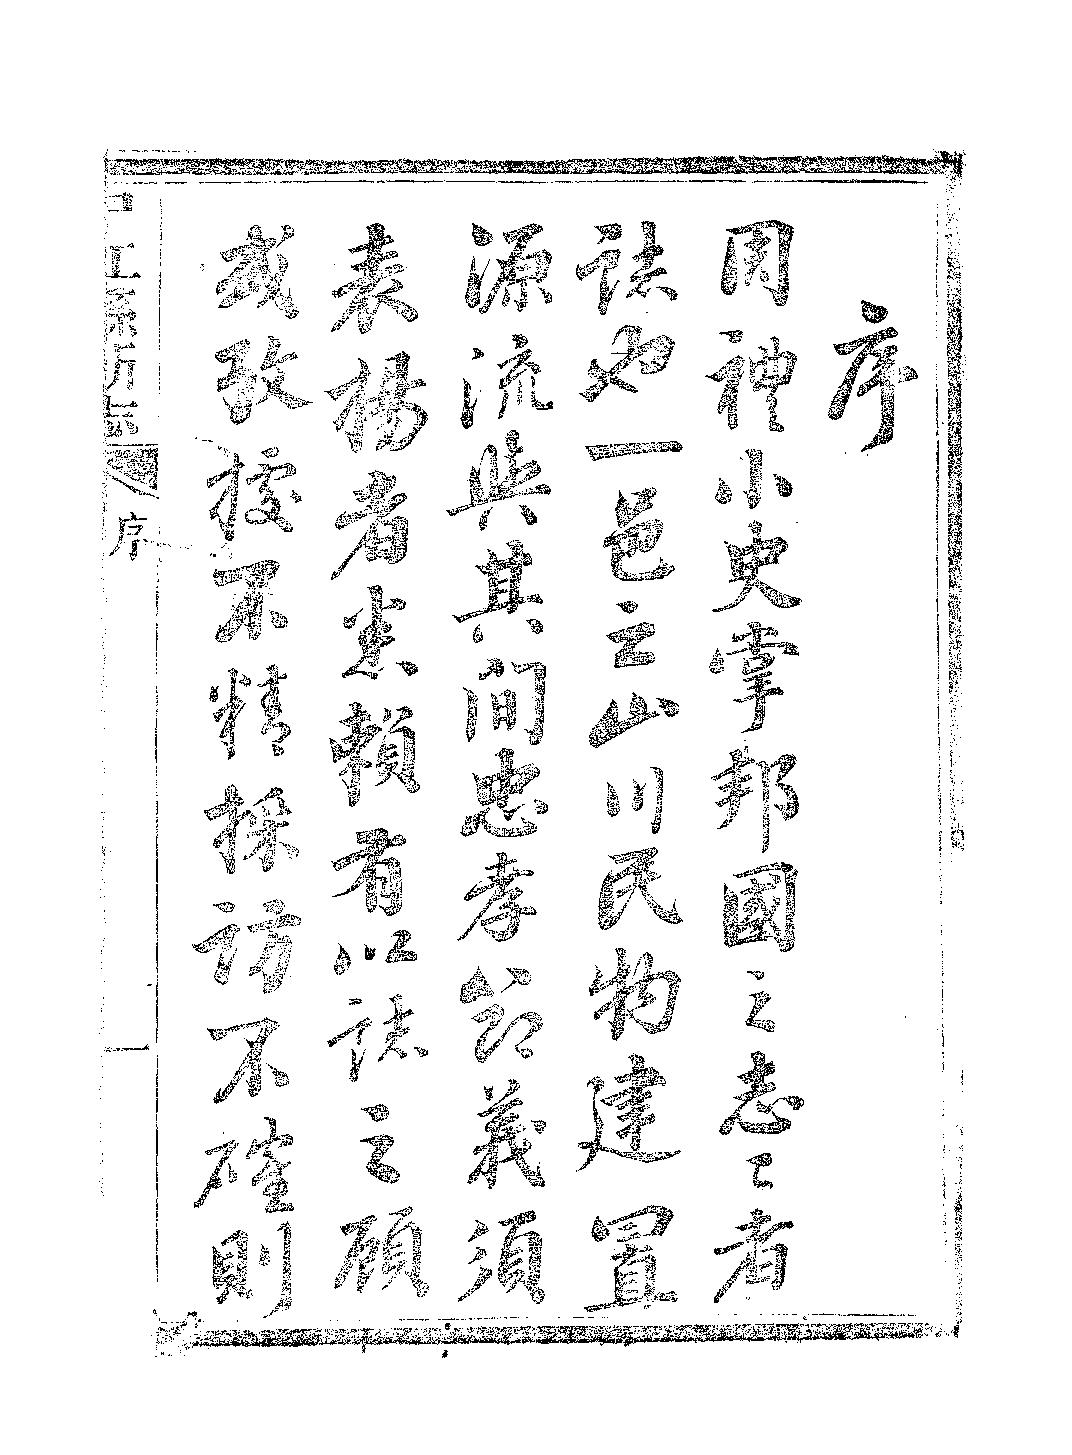 序
周禮小史掌邦國之志志者
誌也一邑之山川民物建置
源流與其間忠孝節義須
表揚者悉賴有以誌之顧
或攷據不精採訪不確則
江縣新志
序
一